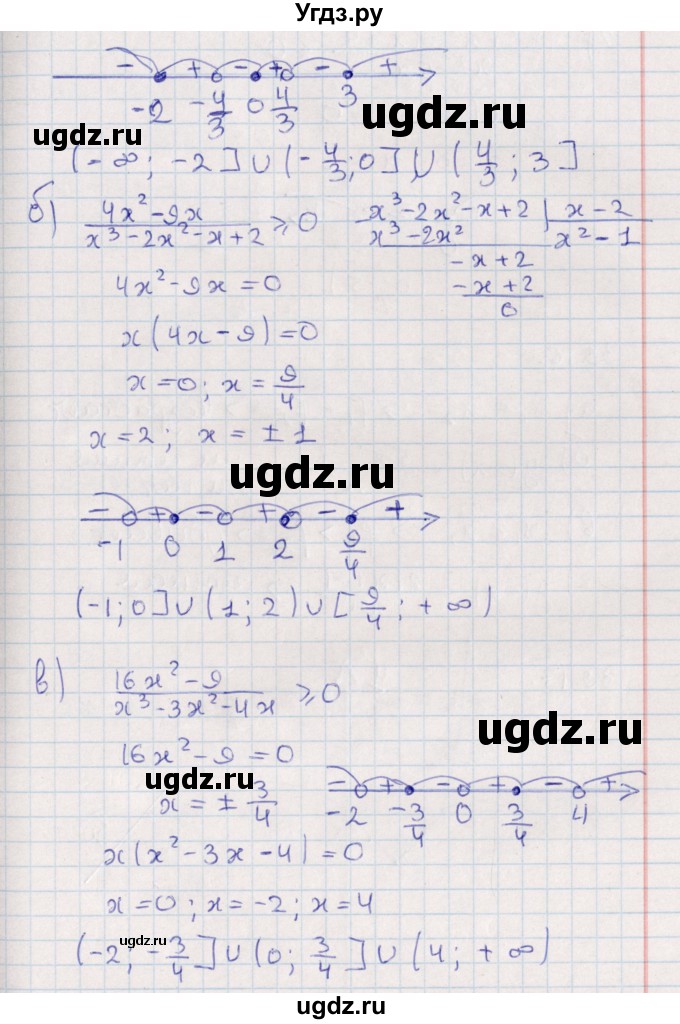 Угдз.ру
- + - + - +
-2 -4/3 0 4/3 3
ugdz.ru
ugdz.ru
(-∞; -2] ∪ (-4/3; 0] ∪ (4/3; 3]
б) (4x² - 9x)/(x³ - 2x² - x + 2) ⩾ 0
x³ - 2x² - x + 2 | x - 2
x³ - 2x² x² - 1
- x + 2
- x + 2
0
4x² - 9x = 0
x(4x - 9) = 0
x = 0; x = 9/4
x = 2; x = ± 1
ugdz.ru
- + - + - +
-1 0 1 2 9/4
(-1; 0] ∪ (1; 2) ∪ [9/4; +∞)
в) (16x² - 9)/(x³ - 3x² - 4x) ⩾ 0
ugdz.ru
16x² - 9 = 0
ugdz.ru
x = ± 3/4
- + - + - +
-2 -3/4 0 3/4 4
x(x² - 3x - 4) = 0
x = 0; x = -2; x = 4
ugdz.ru
(-2; -3/4] ∪ (0; 3/4] ∪ (4; +∞)
ugdz.ru